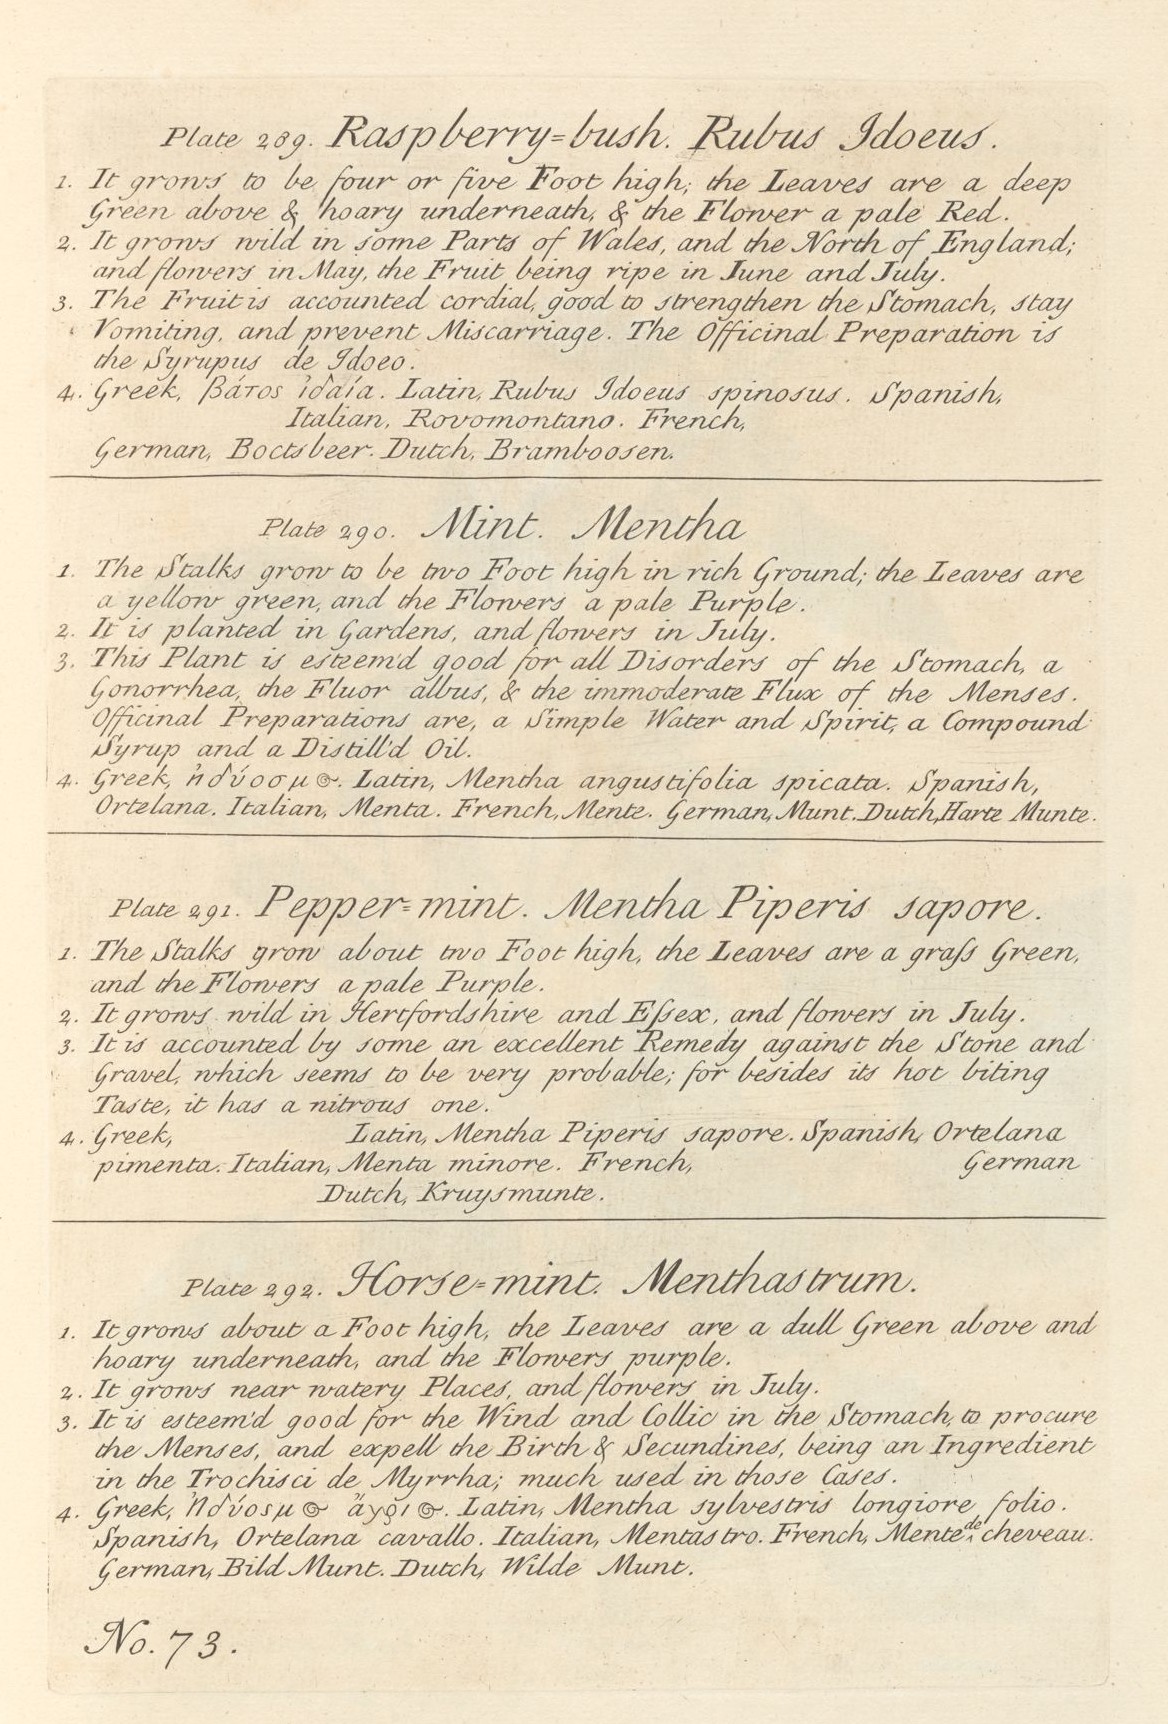 Plate 289. Raspberry=bush. Rubus Idoeus.
1. It grows to be four or five Foot high; the Leaves are a deep
Green above & hoary underneath, & the Flower a pale Red.
2. It grows wild in some Parts of Wales, and the North of England;
and flowers in May, the Fruit being ripe in June and July.
3. The Fruit is accounted cordial, good to strengthen the Stomach, stay
Vomiting, and prevent Miscarriage. The Officinal Preparation is
the Syrupus de Idoeo.
4. Greek, βάτος ἰδαία. Latin, Rubus Idoeus spinosus. Spanish,
Italian, Rovomontano. French,
German, Boctsbeer. Dutch, Bramboosen.
Plate 290. Mint. Mentha
1. The Stalks grow to be two Foot high in rich Ground; the Leaves are
a yellow green, and the Flowers a pale Purple.
2. It is planted in Gardens, and flowers in July.
3. This Plant is esteem'd good for all Disorders of the Stomach, a
Gonorrhea, the Fluor albus, & the immoderate Flux of the Menses.
Officinal Preparations are, a Simple Water and Spirit, a Compound
Syrup and a Distill'd Oil.
4. Greek, ἡδύοσμος. Latin, Mentha angustifolia spicata. Spanish,
Ortelana. Italian, Menta. French, Mente. German, Munt. Dutch, Harte Munte.
Plate 291. Pepper=mint. Mentha Piperis sapore.
1. The Stalks grow about two Foot high, the Leaves are a graſs Green,
and the Flowers a pale Purple.
2. It grows wild in Hertfordshire and Eſsex, and flowers in July.
3. It is accounted by some an excellent Remedy against the Stone and
Gravel, which seems to be very probable; for besides its hot biting
Taste, it has a nitrous one.
4. Greek, Latin, Mentha Piperis sapore. Spanish, Ortelana
pimenta. Italian, Menta minore. French, German
Dutch, Kruysmunte.
Plate 292. Horse=mint. Menthastrum.
1. It grows about a Foot high, the Leaves are a dull Green above and
hoary underneath, and the Flowers purple.
2. It grows near watery Places, and flowers in July.
3. It is esteem'd good for the Wind and Collic in the Stomach, to procure
the Menses, and expell the Birth & Secundines, being an Ingredient
in the Trochisci de Myrrha; much used in those Cases.
4. Greek, Ἡδύοσμος ἄγριος. Latin, Mentha sylvestris longiore folio.
Spanish, Ortelana cavallo. Italian, Mentastro. French, Mente de cheveau.
German, Bild Munt. Dutch, Wilde Munt.
No. 73.